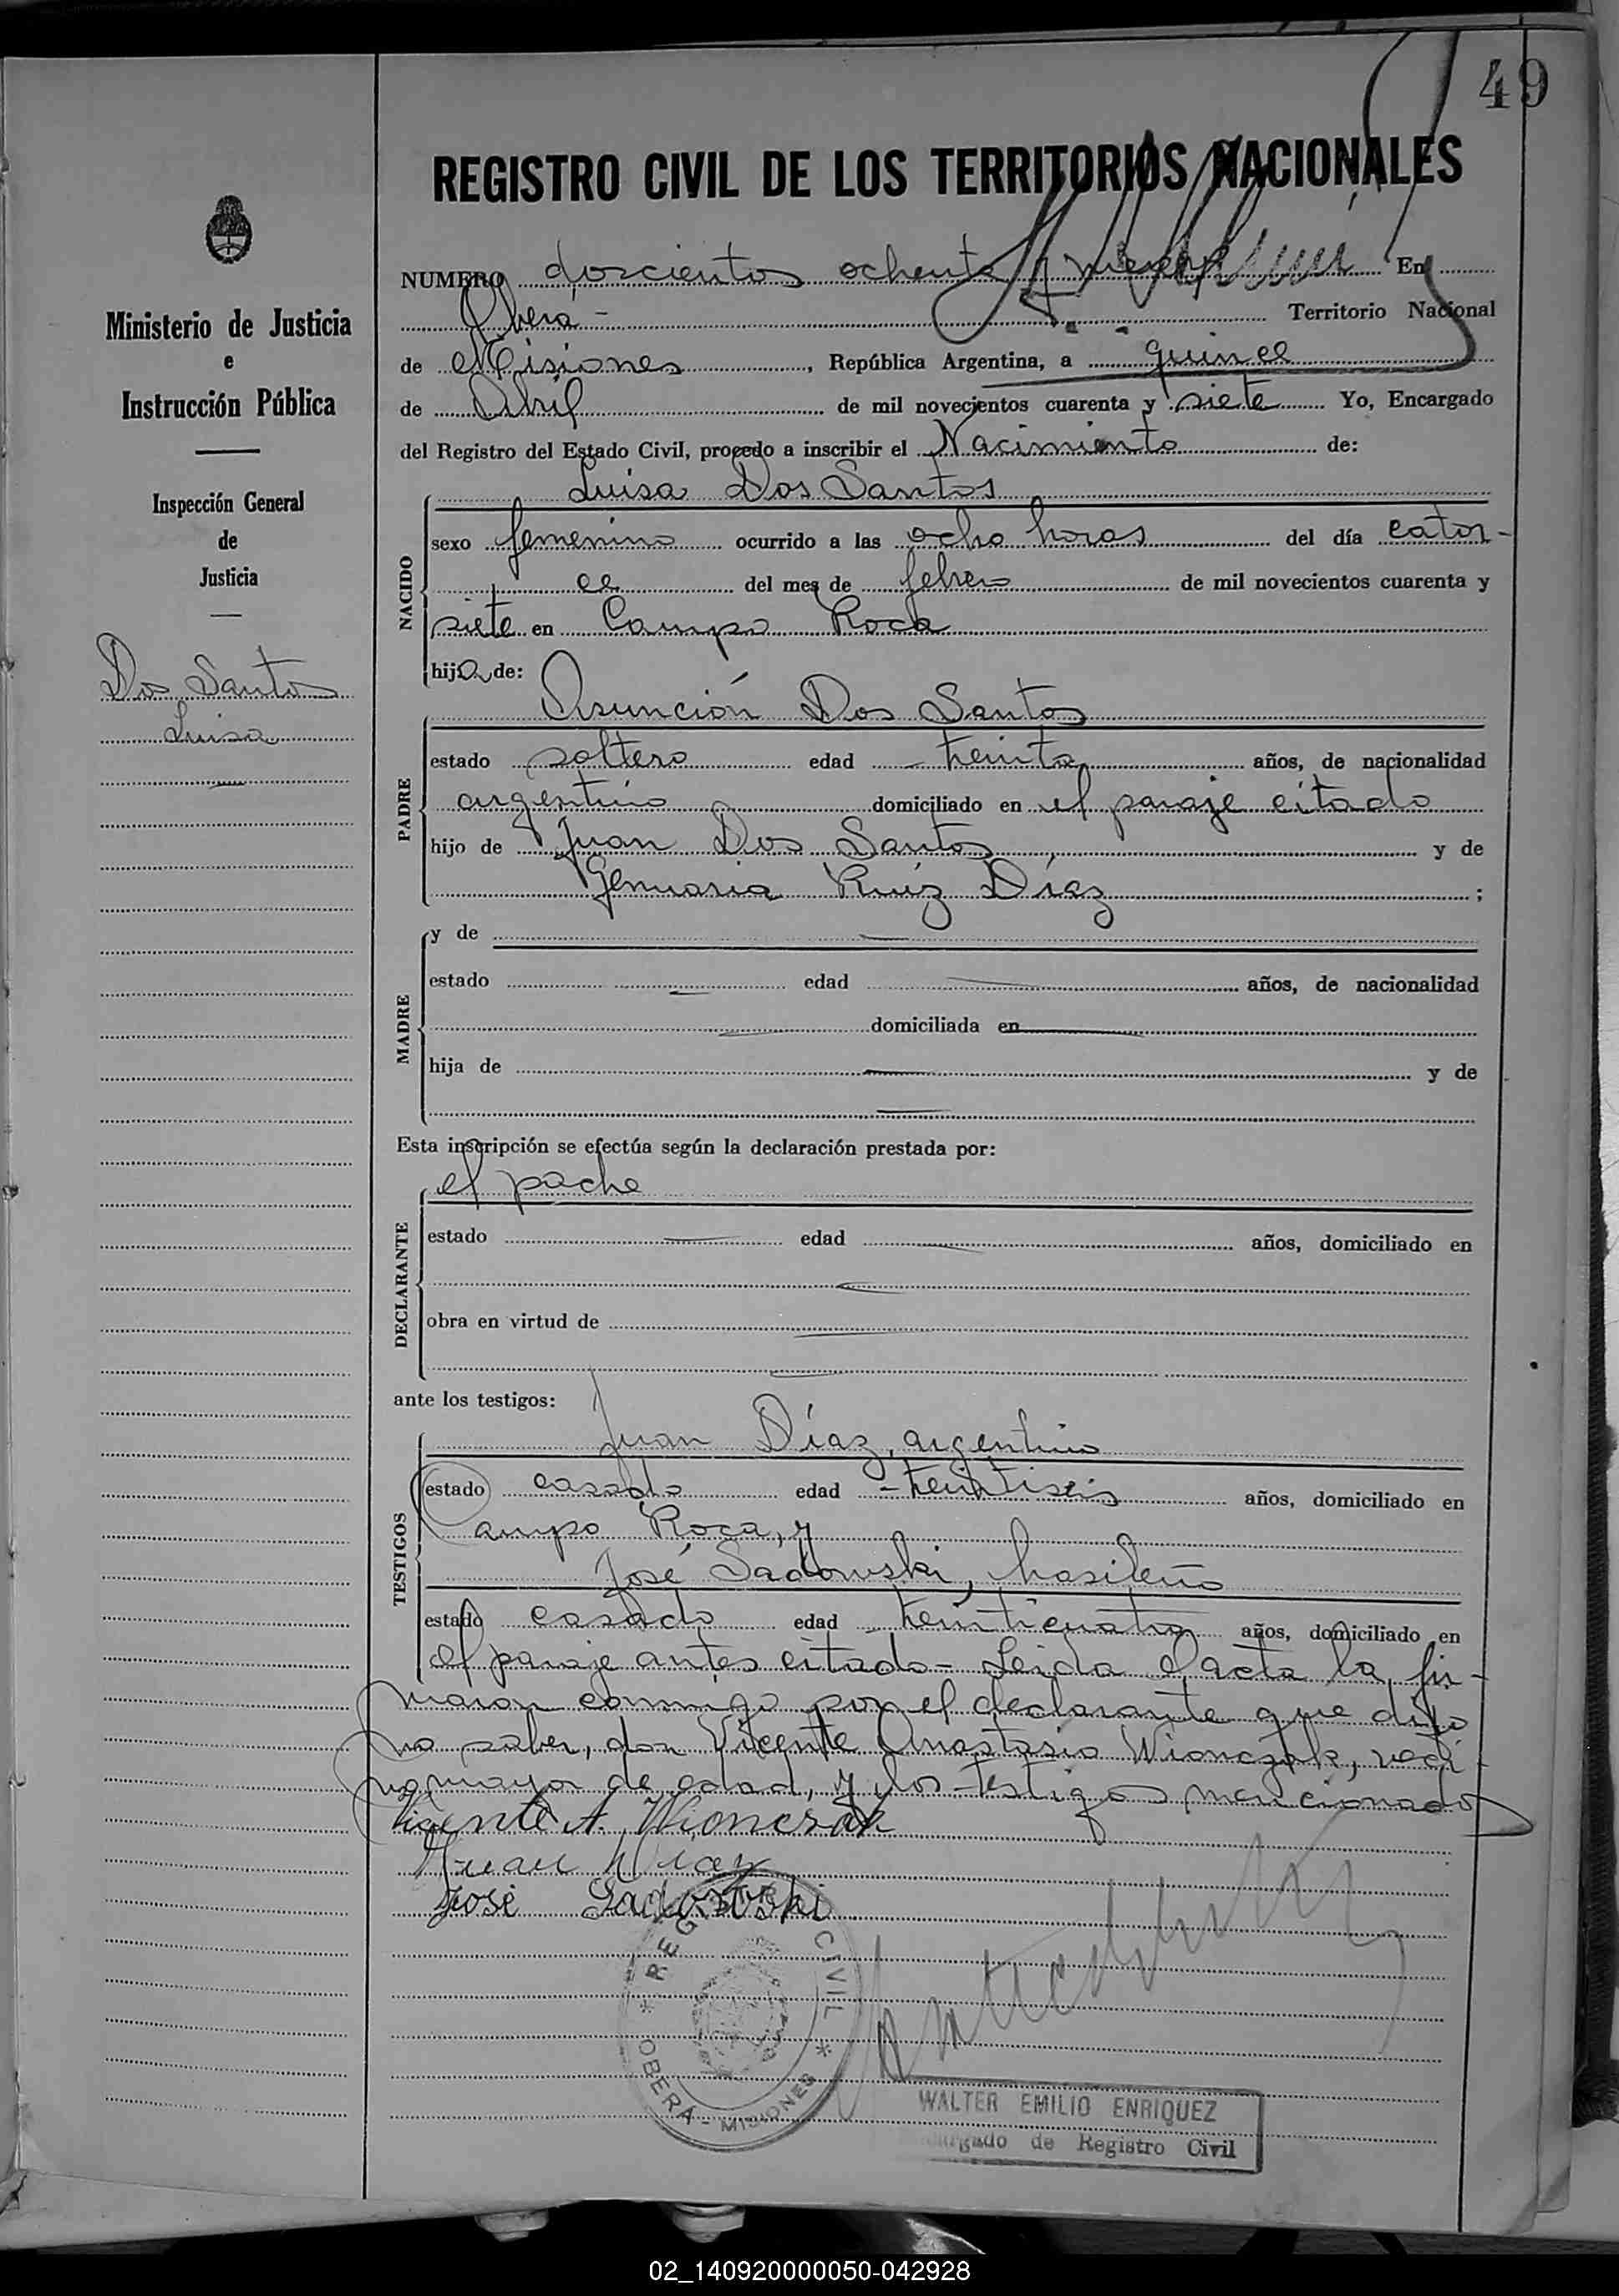 49
REGISTRO CIVIL DE LOS TERRITORIOS NACIONALES
NUMERO doscientos ochenta y nueve En
Oberá - Territorio Nacional
de Misiones, República Argentina, a quince
de Abril de mil novecientos cuarenta y siete Yo, Encargado
del Registro del Estado Civil, procedo a inscribir el Nacimiento de:
Ministerio de Justicia
e
Instrucción Pública
Inspección General
de
Justicia
Dos Santos
Luisa
NACIDO
Luisa Dos Santos
sexo femenino ocurrido a las ocho horas del día cator-
ce del mes de febrero de mil novecientos cuarenta y
siete en Campo Roca
hija de:
PADRE
Asunción Dos Santos
estado soltero edad treinta años, de nacionalidad
argentino domiciliado en el paraje citado
hijo de Juan Dos Santos y de
Genuaria Ruíz Díaz ;
MADRE
y de
estado edad años, de nacionalidad
domiciliada en
hija de y de
Esta inscripción se efectúa según la declaración prestada por:
DECLARANTE
el padre
estado edad años, domiciliado en
obra en virtud de
ante los testigos:
TESTIGOS
Juan Díaz, argentino
estado casado edad treintiseis años, domiciliado en
Campo Roca, y
José Sadowski, brasileño
estado casado edad treinticuatro años, domiciliado en
el paraje antes citado - Leida el acta la fir-
maron conmigo por el declarante que dijo
no saber, don Vicente Anastasio Wionczak, veci-
no mayor de edad, y los testigos mencionados
Vicente A. Wionczak
Juan Diaz
José Sadowski
REGISTRO CIVIL
* OBERÁ - MISIONES *
WALTER EMILIO ENRIQUEZ
Encargado de Registro Civil
02_140920000050-042928